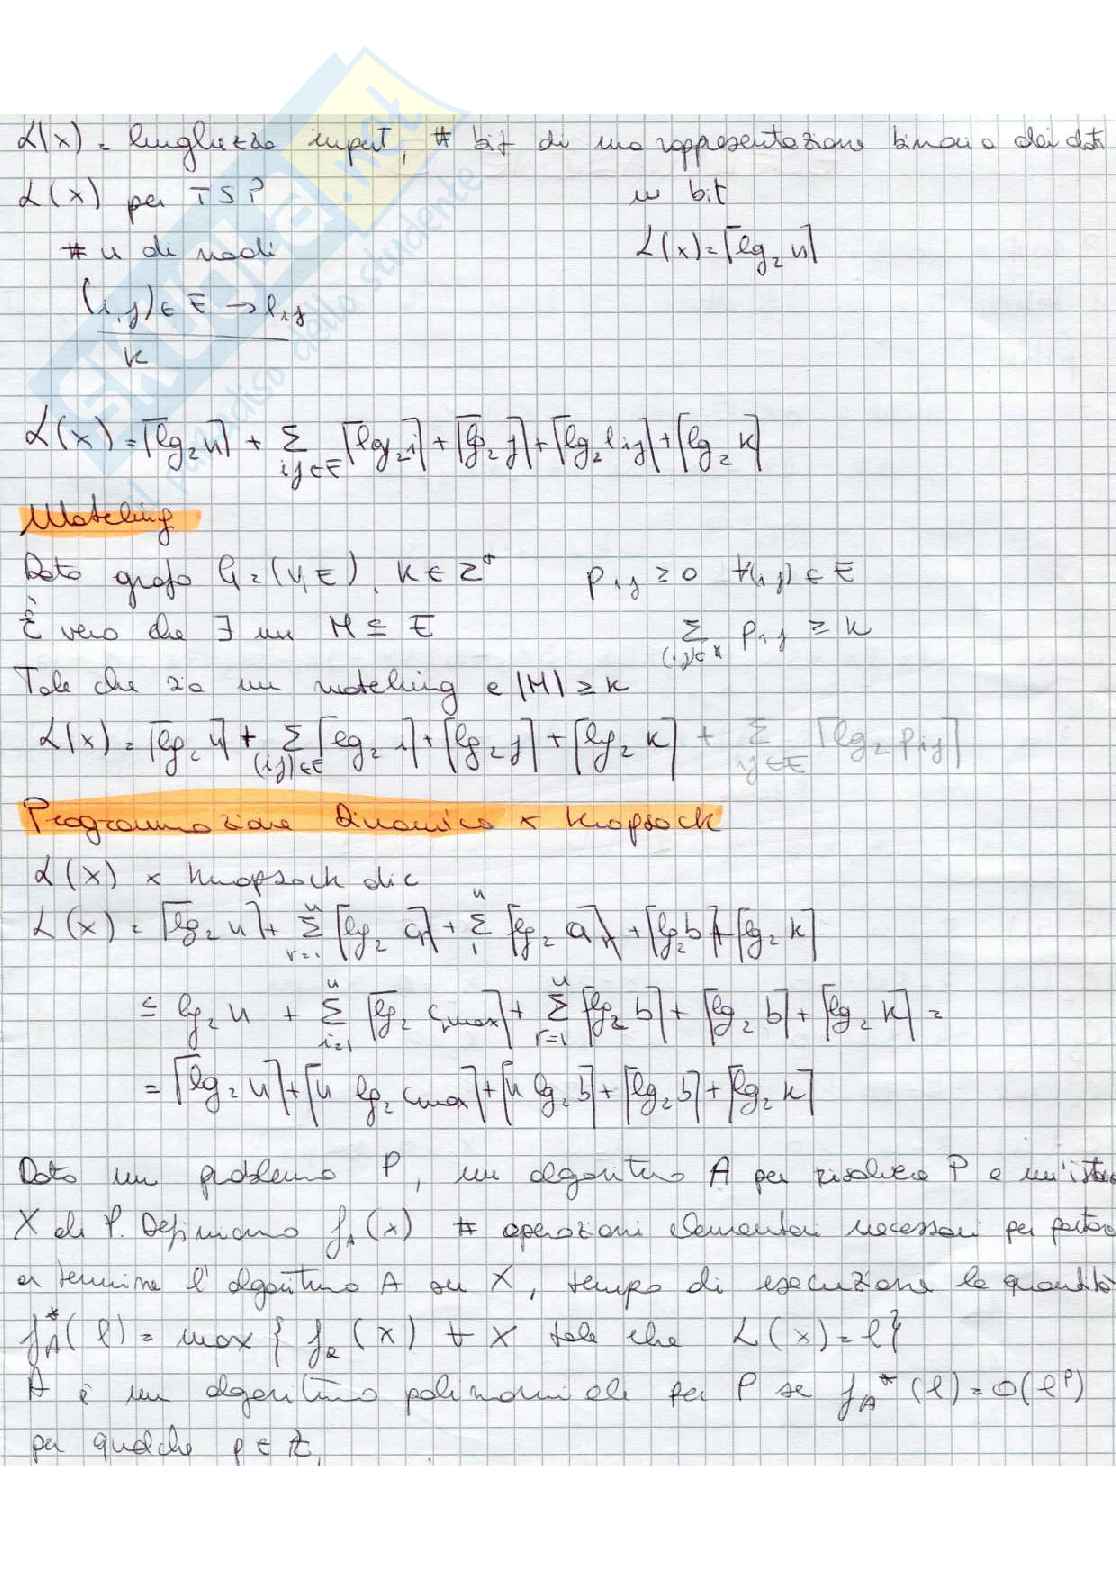 L(x) = lunghezza input, # bit di una rappresentazione binaria dei dati
L(x) per TSP in bit
# n di nodi L(x) = ⌈lg₂ n⌉
(i,j) ∈ E → l_ij
K
L(x) = ⌈lg₂ n⌉ + Σ_{ij∈E} ⌈lg₂ i⌉ + ⌈lg₂ j⌉ + ⌈lg₂ l_ij⌉ + ⌈lg₂ K⌉
Matching
Dato grafo G = (V,E), K ∈ Z⁺ p_ij ≥ 0 ∀(i,j) ∈ E
È vero che ∃ un M ⊆ E Σ p_ij ≥ K
Tale che sia un matching e |M| ≥ K
L(x) = ⌈lg₂ n⌉ + Σ_{(i,j)∈E} ⌈lg₂ i⌉ + ⌈lg₂ j⌉ + ⌈lg₂ K⌉ + Σ_{ij∈E} ⌈lg₂ p_ij⌉
Programmazione Dinamica x Knapsack
L(x) x Knapsack dic
L(x) = ⌈lg₂ n⌉ + Σ ⌈lg₂ c⌉ + Σ ⌈lg₂ a⌉ + ⌈lg₂ b⌉ + ⌈lg₂ K⌉
≤ lg₂ n + Σ_{i=1}^{n} ⌈lg₂ c_max⌉ + Σ_{i=1}^{n} ⌈lg₂ b⌉ + ⌈lg₂ b⌉ + ⌈lg₂ K⌉ =
= ⌈lg₂ n⌉ + ⌈n lg₂ c_max⌉ + ⌈n lg₂ b⌉ + ⌈lg₂ b⌉ + ⌈lg₂ K⌉
Dato un problema P, un algoritmo A per risolvere P e un'istanza
X di P. Definiamo f_A(x) # operazioni elementari necessari per portare
a termine l'algoritmo A su X, tempo di esecuzione la quantità
f_A*(l) = max { f_a(x) ∀ X tale che L(x) = l }
A è un algoritmo polinomiale per P se f_A*(l) = O(l^p)
per qualche p ∈ Z
SKUOLA.net
il paradiso dello studente